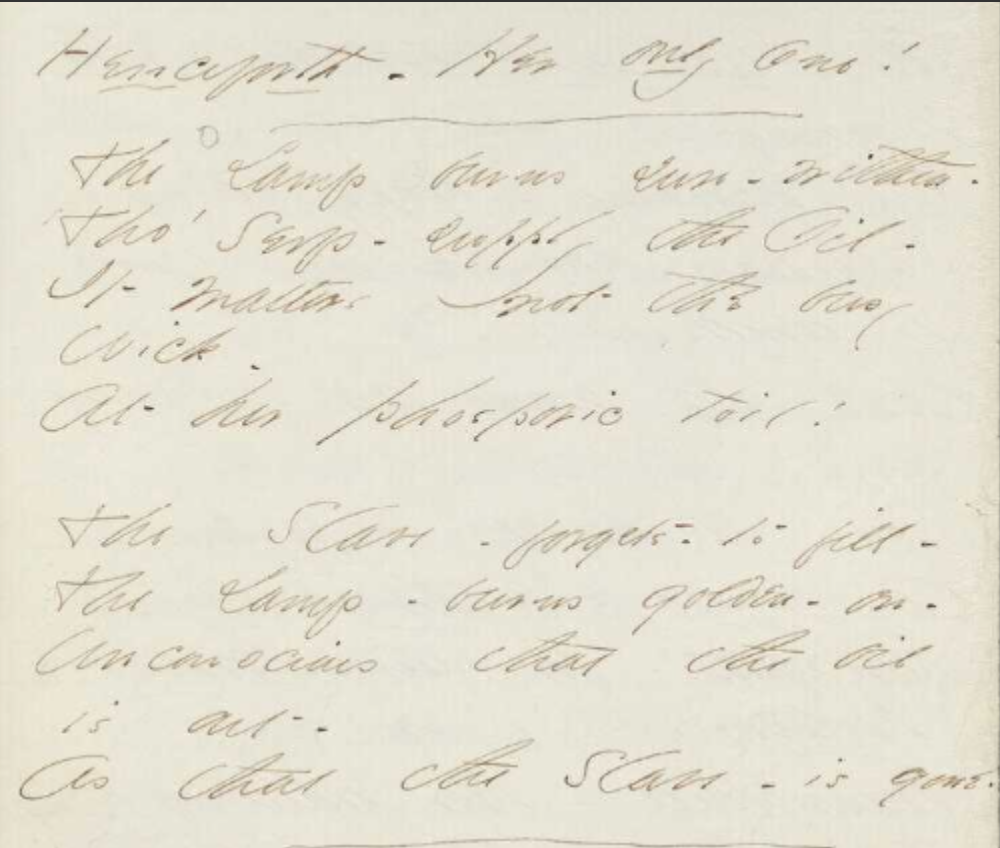 Henceforth - Her only One!
The Lamp burns sure - within -
Tho' Serfs - supply the Oil -
It matters not the busy
Wick -
At her phosphoric toil!
The Slave - forgets - to fill -
The Lamp - burns golden - on -
Unconscious that the oil
is out -
As that the Slave - is gone.